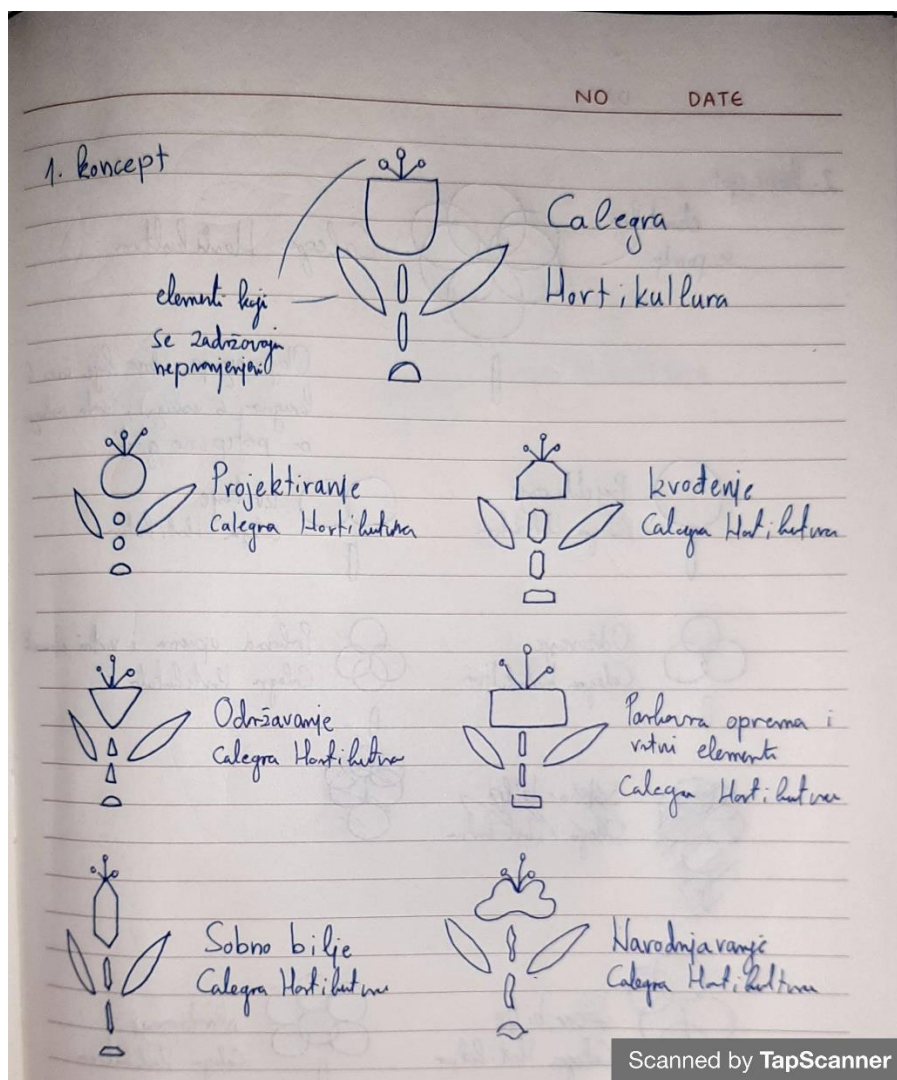 NO DATE
1. koncept
Calegra
Hortikultura
elementi koji
se zadržavaju
nepromjenjeni
Projektiranje
Calegra Hortikutura
Izvođenje
Calegra Hortikutura
Održavanje
Calegra Hortikutura
Parkovna oprema i
vrtni elementi
Calegra Hortikutura
Sobno bilje
Calegra Hortikutura
Navodnjavanje
Calegra Hortikultura
Scanned by TapScanner